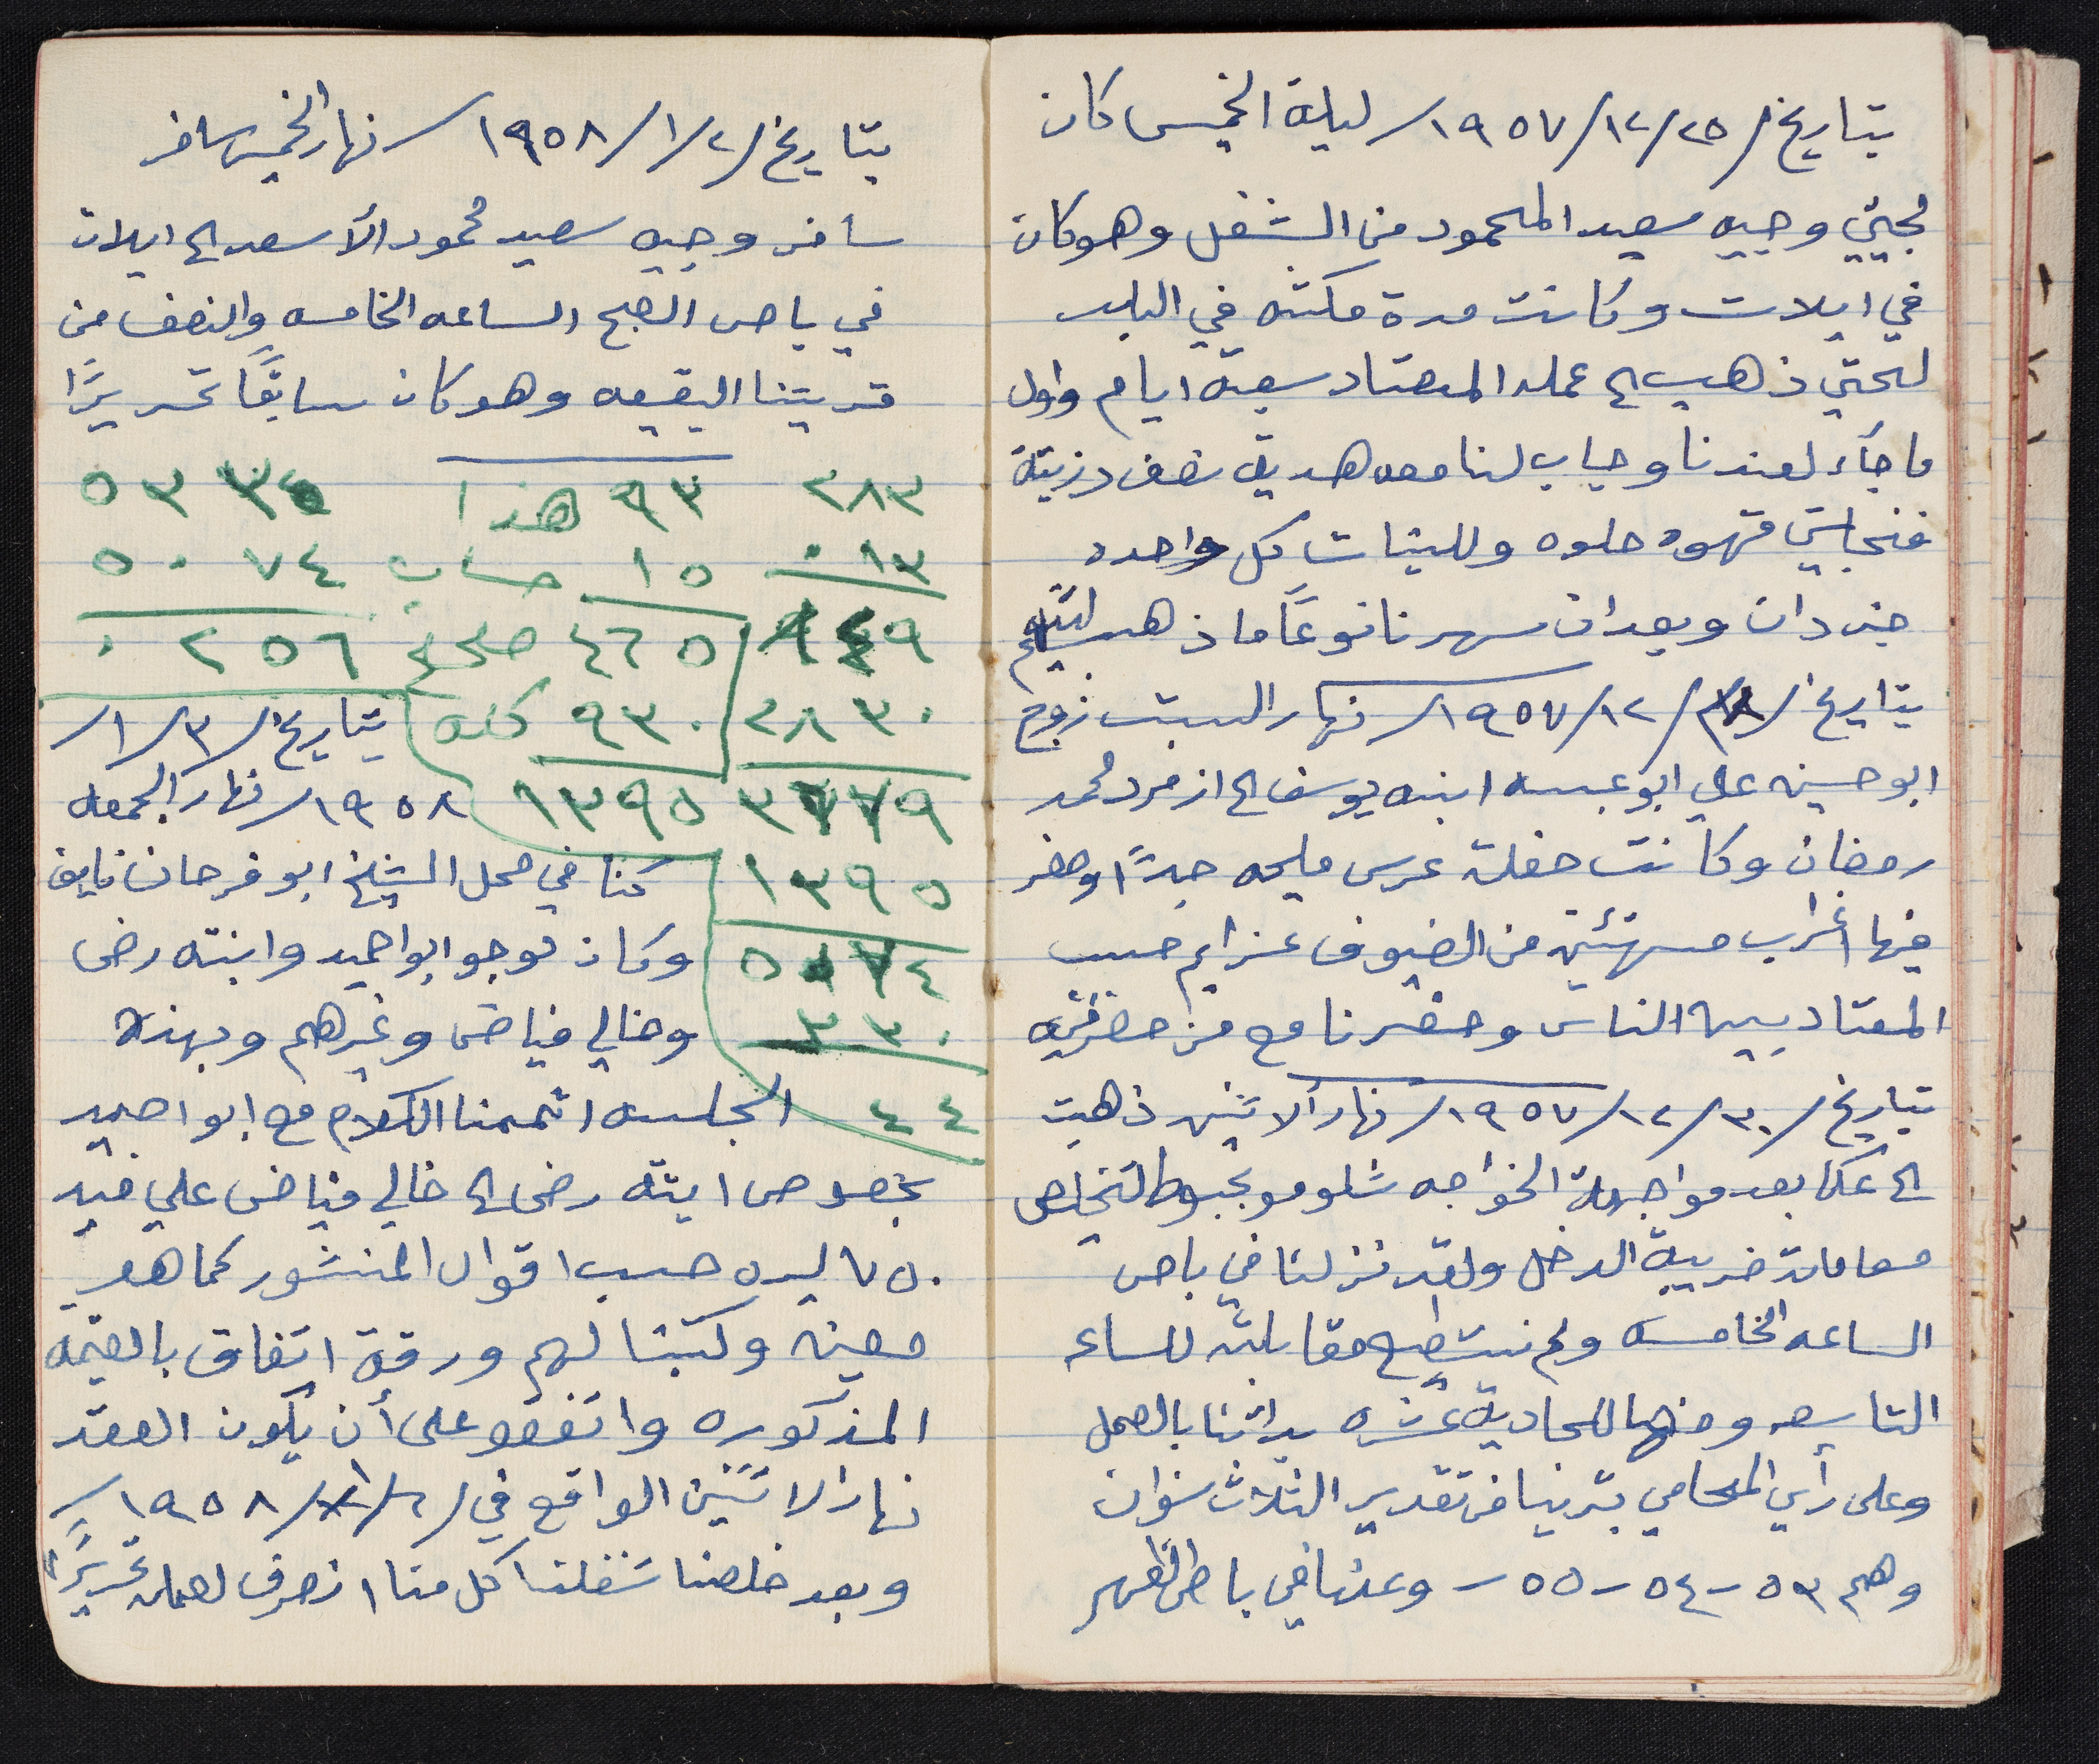 بتاريخ /٢٥/١٢/١٩٥٧/ ليلة الخميس كان
لجيئي وجيه سعيد المحمود من الشغل وهو كان
في ايلات وكانت مدة مكثه في البلد
لحتي ذهب الى عمله المعتاد سبعة ايام واول
ما جآء لعندنا وجاب لنا معه هدية نصف دزينة
فنجانين قهوه حلوه وللبنات كل واحده
جزدان وبعد ان سهرنا نوعًا ما ذهب
بتاريخ /٢٨/١٢/١٩٥٧/ نهار السبت زوج
ابو حسين علي ابو عبسه ابنه يوسف الى ازمرد محمد
رمضان وكانت حفلة عرس مليحه جدًا وحضر
فيها اغراب مهنئين من الضيوف عزايم حسب
المعتاد بين الناس وحضرنا مع من حضر
بتاريخ /٣٠/١٢/١٩٥٧/ نهار ألاثنين ذهبت
الى عكا بعد مواجهة الخواجه شلومو لتخليص
معاملة ضريبة الدخل ولقد نزلنا في باص
الساعه الخامسه ولم نستطيع مقابلته للساعه
التاسعه ومنها للحادية عشره بداتنا بالعمل
وعلى رأي المحامي تقدير الثلاث سنوات
وهم ٥٣ - ٥٤ - ٥٥ - وعدنا في باص الظهر
بتاريخ /٢/١/١٩٥٨/ نهار الخميس سافر
سافر وجيه سعيد محمود ألأسعد الى ايلات
في باص الصبح الساعه الخامسه والنصف من
قريتنا البقيعه وهو كان سابقًا تحريرًا
٢٨٣ ٩٣ هذا ٥٣
٠١٣ ١٥ حساب ٧٤ ٥٠
٨٤٩ ٤٦٥ ٢٥٦٠
٢٨٣٠ ٩٣٠ كله
بتاريخ /٣/١/
٣٦٧٩ ١٣٩٥
١٩٥٨/ نهار الجمعه
١٣٩٥
كنا في محل الشيخ ابو فرحان نايف
٥٠٧٤
وكان موجو ابو احميد وابنته رضى
٣٣٠
وخالي فياض وغيرهم وبهذه
٤٤
الجلسه اتممنا الكلام مع ابو احميد
بخصوص ابنته رضى الى خالي فياض علي فيد
٧٥٠ ليره حسب اقوال المنشور كما هو
معين وكتبنا لهم ورقة اتفاق بالقيمه
المذكوره واتفقو على أن يكون العقد
نهار الاثنين الواقع في /٦/١/١٩٥٨/
وبعد خلصنا شغلنا كل منا انصرف لعمله تحريرًا